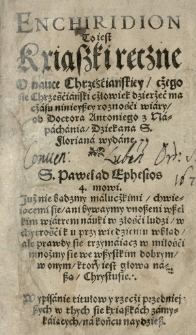 ENCHIRIDION
To iest
Kxiąszki ręczne
O nauce Chrześciáńskiey / czego
sie Chrześciáński człowiek dzierżeć ma
czásu ninieyszey roznośći wiáry /
od Doctorá Antoniego z Na-
páchánia / Dziekaná S.
Floriana wydáne.
S. Paweł ad Ephesios
4. mowi.
Już nie bądźmy máluczkimi / chwie-
iącemi sie / áni bywaymy vnoszeni wszel-
kim wiátrem náuki w złośći ludzi / w
chytrośćiách u przywiedzieniu w błąd /
ále prawdy sie trzymáiąc á w miłośći
mnożmy sie we wszystkim dobrym /
w onym / ktory iest głowá ná-
szá / Chrystusie.
Wypisánie titułow y rzeczy przednieyß-
szych w tych sie kxiąszkách zámy-
káiących / ná końcu naydziesz.